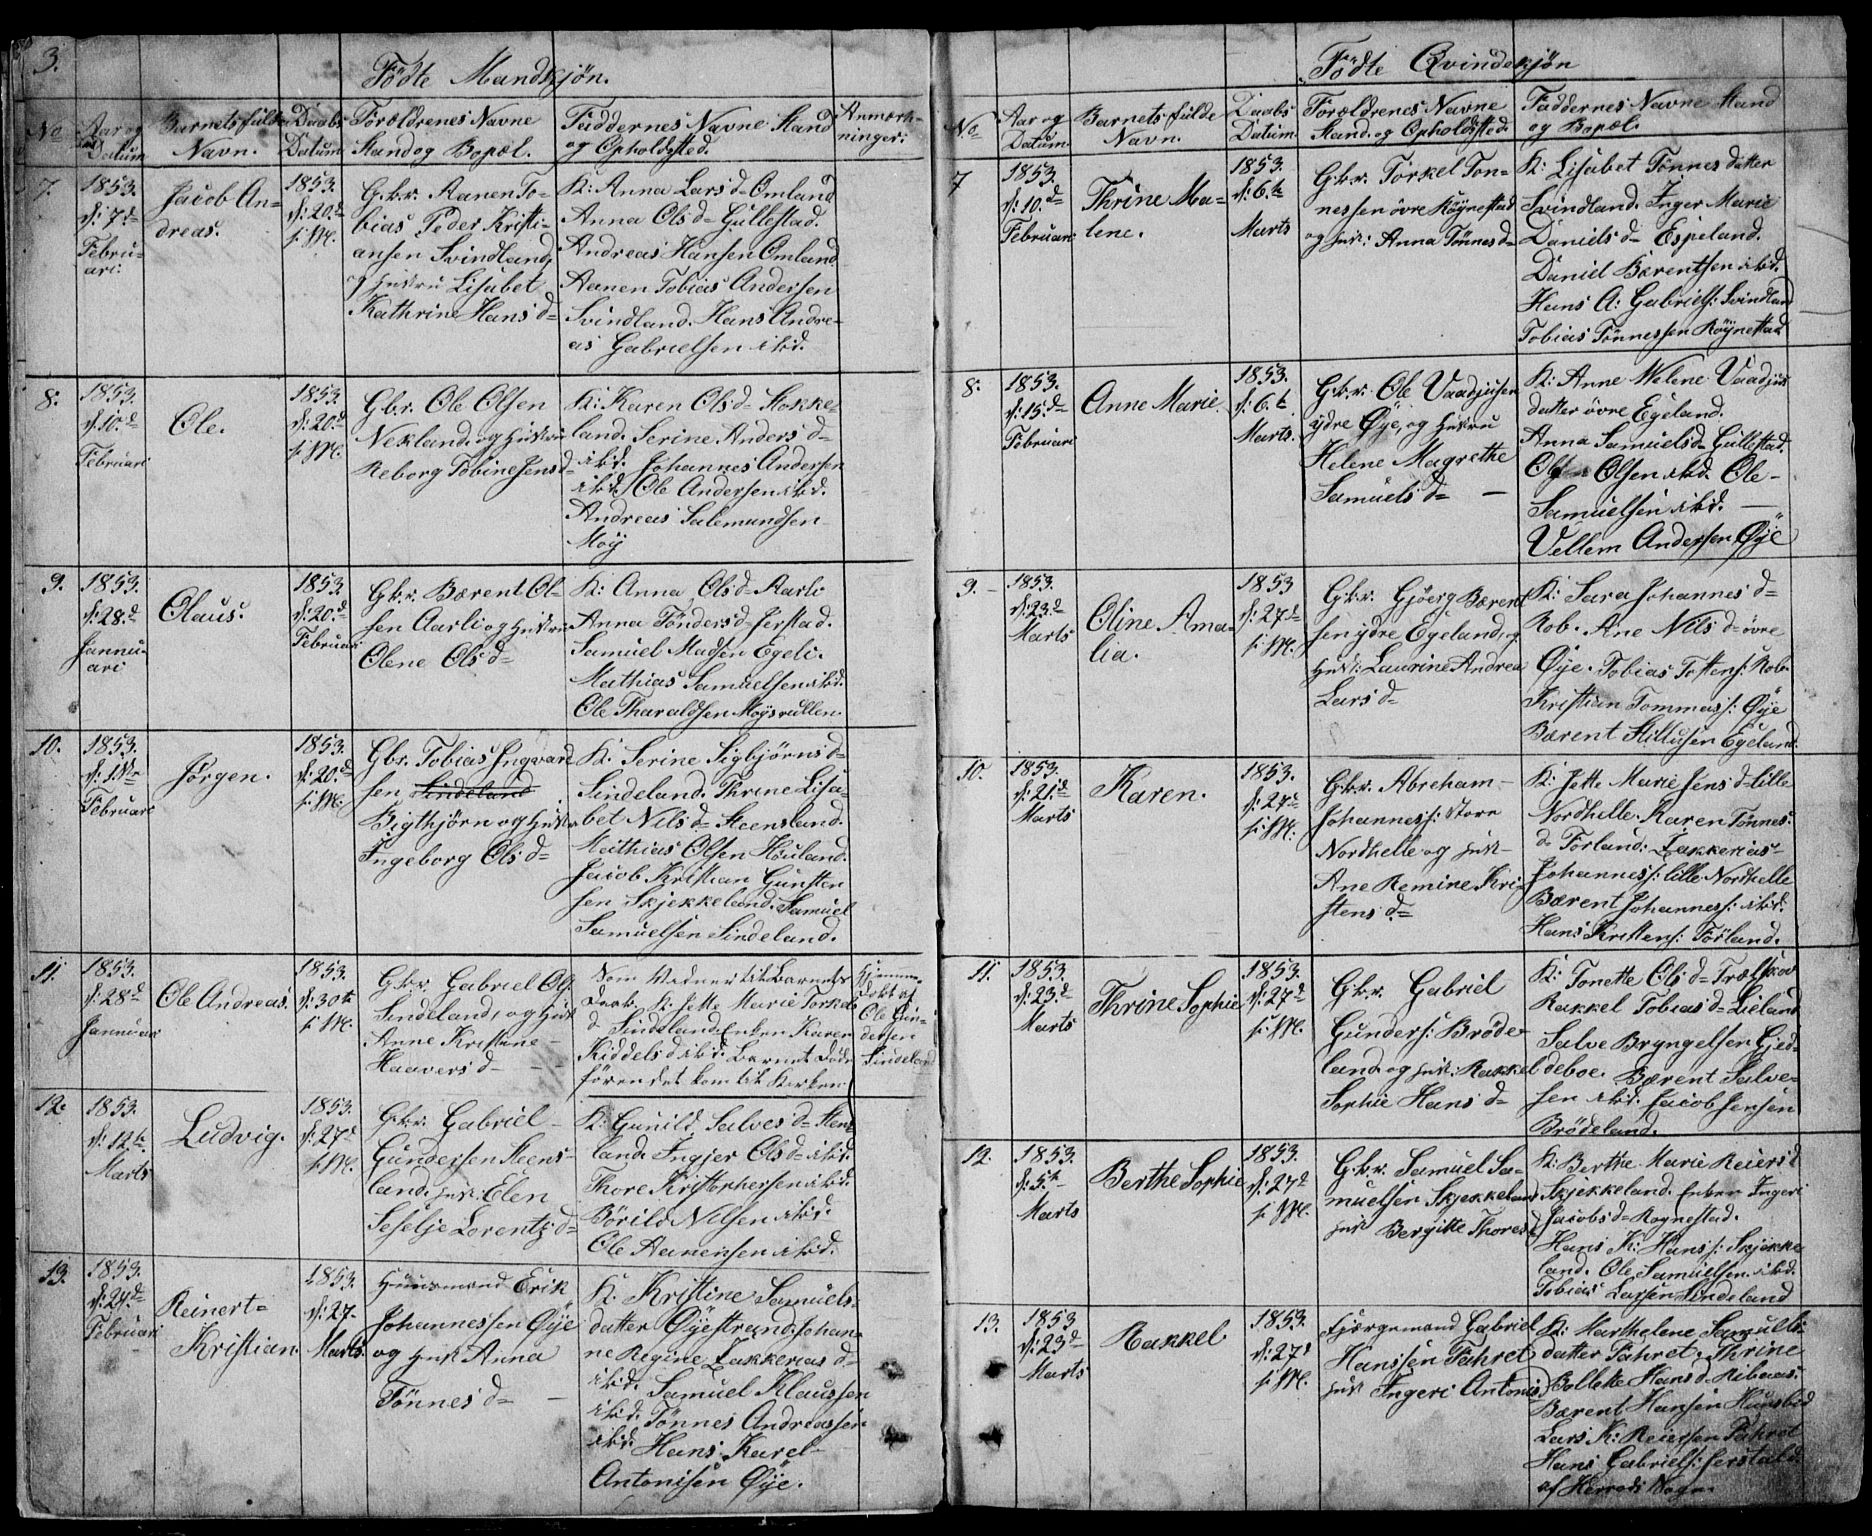 3.
Födte Mandkjøn.
No
Aar og Datum
Barnets fulde Navn.
Daabs Datum
Forældrenes Navne Stand og Bopæl.
Faddernes Navne Stand og Opholdssted.
Anmærkninger.
7.
1853. d: 7de Februari.
Jacob Andreas.
1853. d: 20.d s: M.
Gkr. Aanen To-
bias Peder Kristi-
ansen Svindland,
og Hustru Lisabet
Kathrine Hans d=
K: Anna Lars d= Omland
Anna Ols d= Gullestad.
Andreas Hansen Omland.
Aanen Tobias Andersen
Svindland. Hans Andre-
as Gabrielsen ibid.
8.
1853. d: 10.d Februari
Ole.
1853. d: 20.d s: M.
Gbr. Ole Olsen
Nekland. og Hustru
Reborg Tobine Jens d=
K: Karen Ols d= Stokke-
land. Serine Anders d=
ibid. Johannes Andersen
ibid. Ole Andersen ibid.
Andreas Salemundsen
Moÿ
9.
1853. d: 28.d Januari
Olaus.
1853. d: 20.d Februari
Gkr. Bærent Ol-
sen Aarli og Hustru
Olene Ols d=
K: Anna Ols d= Aarli
Anna Tönders d= Jerstad.
Samuel Madsen Egeli.
Mathias Samuelsen ibid.
Ole Tharaldsen Moÿsvullen.
10.
1853. d: 1ste Februari
Jörgen.
1853. d: 20.d s: M.
Gbr. Tobias Ingvald
sen Sindeland
Bigthjörn og Hustru
Ingeborg Ols d=
K: Serine Sigbjörns d=
Sindeland. Thrine Lisa-
bet Nils d= Steensland.
Mathias Olsen Höuland.
Jacob Kristian Gunsten
sen Skjekkeland. Samuel
Samuelsen Sindeland.
11.
1853. d: 28d Januari
Ole Andreas.
1853. d: 30te s: M.
Gkr. Gabriel Ols
Sindeland, og Hust
Anne Kristine
Haavers d=
Som Vidner til Barnets
Daab. K: Jette Marie Torkels
d Sindeland. Enken Karen
Kiddels d ibid. Barnet døde
føren det kom til Kirken
Hjemme-
døbt af
Ole Gun-
dersen
Sindeland
12.
1853. d: 12te Marts
Ludvig.
1853. d: 27d s: M.
Gkr. Gabriel
Gundersen Steens-
land. Hust: Elen
Seselje Lorentz d=
K: Gunild Salves d= Steens
land. Ingjer Ols d= ibid.
Thore Kristophersen ibid.
Börild Nilsen ibid.
Ole Aanensen ibid.
13.
1853. d: 24.d Februari
Reinert=
Kristian.
1853. d: 27- Marts.
Huusmand Erik
Johannessen Øÿe
og Hust Anna
Tönnes d=
K: Kristine Samuels-
datter Øÿestrand. Johan-
ne Regine Zakkerias d=
ibid. Samuel Klaussen
ibid. Tönnes Andreassen
ibid. Hans Karel
Antonisen Øÿe.
Födte Qvindekjön
No.
Aar og Datum
Barnets fulde Navn.
Daabs Datum.
Forældrenes Navne Stand. og Opholdsted.
Faddernes Navne Stand og Bopæl.
7
1853 d: 10.d Februari
Thrine Ma-
lene.
1853. d: 6.te Marts
Gkr. Torkel Ton-
nessen övre Röÿnestad
og Hust: Anna Tönnes d=
K: Lisabet Tönnes datter
Svindland. Inger Marie
Daniels d= Espeland.
Daniel Bærentsen ibid.
Hans A: Gabriels: Svindland
Tobias Tönnessen Röÿnestad
8.
1853. d: 15.d Februari
Anne Marie.
1853. d: 6.te Marts.
Gkr. Ole Vaadjusen
ÿdre Øÿe, og Hustru
Helene Magrethe
Samuels d= —
K: Anne Melene Vaadjus
datter övre Egeland.
Anna Samuels d. Gullestad.
Ols Olsen ibid. Ole
Samuelsen ibid. —
Vellem Andersen Øÿe
9.
1853. d: 23.d Marts
Oline Ama-
lia.
1853 d: 27d s: M.
Gkr. Gjöerg Bærent
sen ÿdre Egeland, og
Hust: Laurine Andrea
Lars d=
K: Sara Johannes d=
Rob. Ane Nils d= övre
Øÿe. Tobias Tostens: Rob.
Kristian Tommas: Øÿe
Bærent Stittusen Egeland.
10.
1853. d: 21.d Marts
Karen.
1853. d: 27d s: M.
Gkr. Abreham
Johanness: store
Nordhelle og Hust
Ane Remine Kri-
stens d.=
K: Jette Marie Jens d= Lille
Nordhelle. Karen Tönnes
d= Förland. Zakkerias
Johanness: lille Nordhelle
Bærent Johanness: ibid.
Hans Kristens: Förland.
11.
1853. d: 23.d Marts
Thrine Sophie
1853. d: 27d s: M.
Gkr. Gabriel
Gunders: Bröde
land og Hust: Rakkel
Sophie Hans d=
K: Tonette Ols d= Trælskov
Rakkel Tobias d= Lieland
Salve Bryngelsen Gjed-
deboe. Bærent Salve-
sen ibid. Jacob Jensen
Brödeland.
12
1853. d: 5.te Marts
Berthe Sophie
1853. d: 27d s: M.
Gkr. Samuel Sa-
muelsen Skjekkeland
Hust Bergitte Thores d
K: Berthe Marie Reiers d
Skjekkeland. Enken Ingeri
Jacobs d= Rognestad.
Hans K: Hans: Skjekke
land. Ole Samuelsen ibid.
Tobias Larsen Sindeland
13.
1853 d: 23d Marts
Rakkel
1853. d: 27d s: M.
Fjærgemand Gabriel
Hanssen Fahret
Hust Ingeri Antonis d
K: Marthelene Samuels-
datter Fahret. Thrine
Bollette Hans d. Ribaas.
Bærent Hansen Hunsbed
Lars K: Reiersen Fahret
Hans Gabriels: Jerstald
af Herrods Sogn.